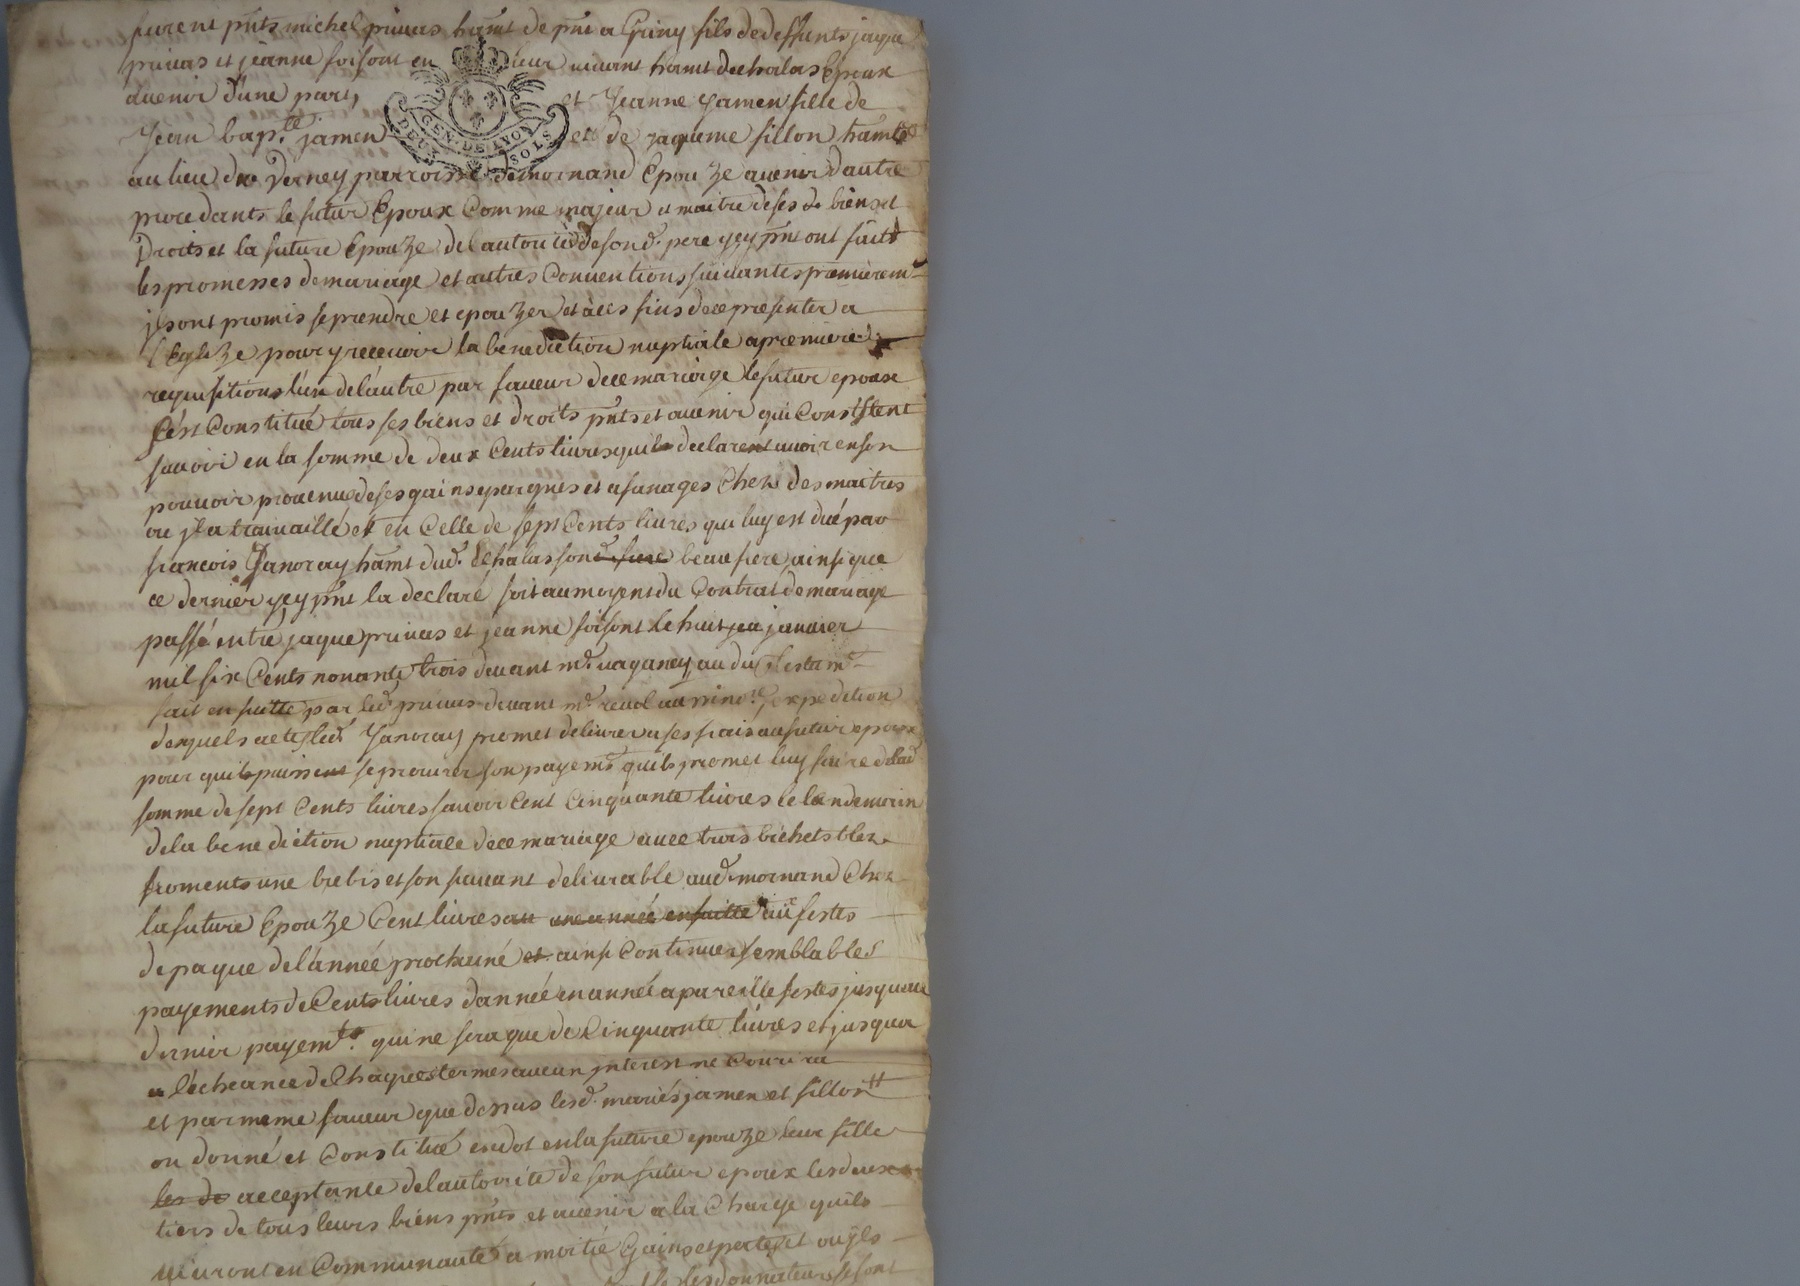 furent pnts michel priuas hamt de pnt a Griny fils de deffunts jaque
priuas et jeanne foisont en leur viuant hamt dechalas Epoux
auenir d'une part, et Jeanne jamen fille de
Jean bapte jamen et de jaqueme fillon hamts
GEN. DE LYON
DEUX SOLS
au lieu du Verney parroisse de mornand Epouze auenir d'autre
procedants le futur Epoux Comme majeur et maitre de ses biens et
Droits et la future Epouze de l'autorité de sond. pere yey pnt ont faits
les promesses de mariage et autres Conuentions suiuantes premieremt
jls ont promis se prendre et epouzer et à ces fins de ce presenter a
l'Eglize pour y receuoir la benediction nuptiale a premiere
requisitions l'un de l'autre par faueur de ce mariage le futur epoux
s'est Constitué tous ses biens et droits pnts et auenir qui Consistent
sauoir en la somme de deux Cents liures quil declare auoir en son
pouuoir prouenue de ses gains epargnes et afanages Chez des maitres
ou jl a trauaillé et en Celle de sept Cents liures qui luy est dué par
francois Janoray hamt dud. Echalas son beau frere, ainsi que
ce dernier yey pnt la declaré soit au moyent du Contrat de mariage
passé entre jaque priuas et jeanne foisont le huit janvier
mil six Cents nonante trois deuant me vaganey au du testamt
fait en suitte par led. priuas deuant me reuol expedition
desquels actes led. Janoray promet deliurer a ses frais au futur epoux
pour quil puisse se procurer son payemt quil promet luy faire de lad.
somme de sept Cents liures sauoir Cent Cinquante liures le lendemain
de la benediction nuptiale de ce mariage auec trois bichets blez
froments une brebis et son suiuant deliurable aud. mornand Chez
la future Epouze Cent liures au une année ensuitte aux festes
de paque de l'année prochainé et ainsi Continuer semblables
payements de Cents liures dannée en année a pareille festes jusqu'au
dernier payemt. qui ne sera que de Cinquante liures et jusqua
a l'echeance de Chaques termes aucun jnterest ne Courira
et par meme faueur que dessus lesd. mariés jamen et fillon
on donné et Constitué en dot en la future epouze leur fille
les de acceptante de l'autorité de son futur epoux les deux
tiers de tous leurs biens pnts et auenir a la Charge quils
viuront en Communauté a moitié Gains et pertes et ou jls
les donnateurs se font